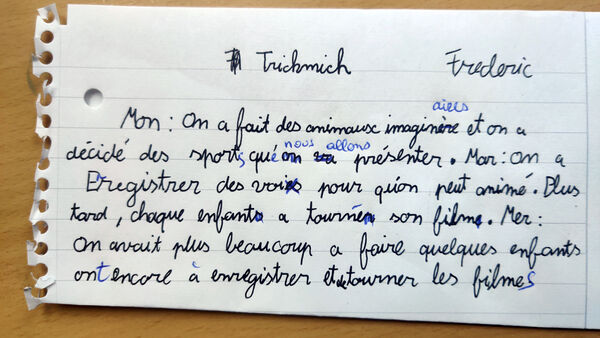 Trickmich Frederic
aires
Mon : On a fait des animausc imaginère et on a
nous allons
décidé des sports qué on va présenter. Mar : on a
Enregistrer des voix pour qu'on peut animé. Plus
tard, chaque enfant a tourné son film. Mer :
On avait plus beaucoup a faire quelques enfants
ont encore à enregistrer et de tourner les films